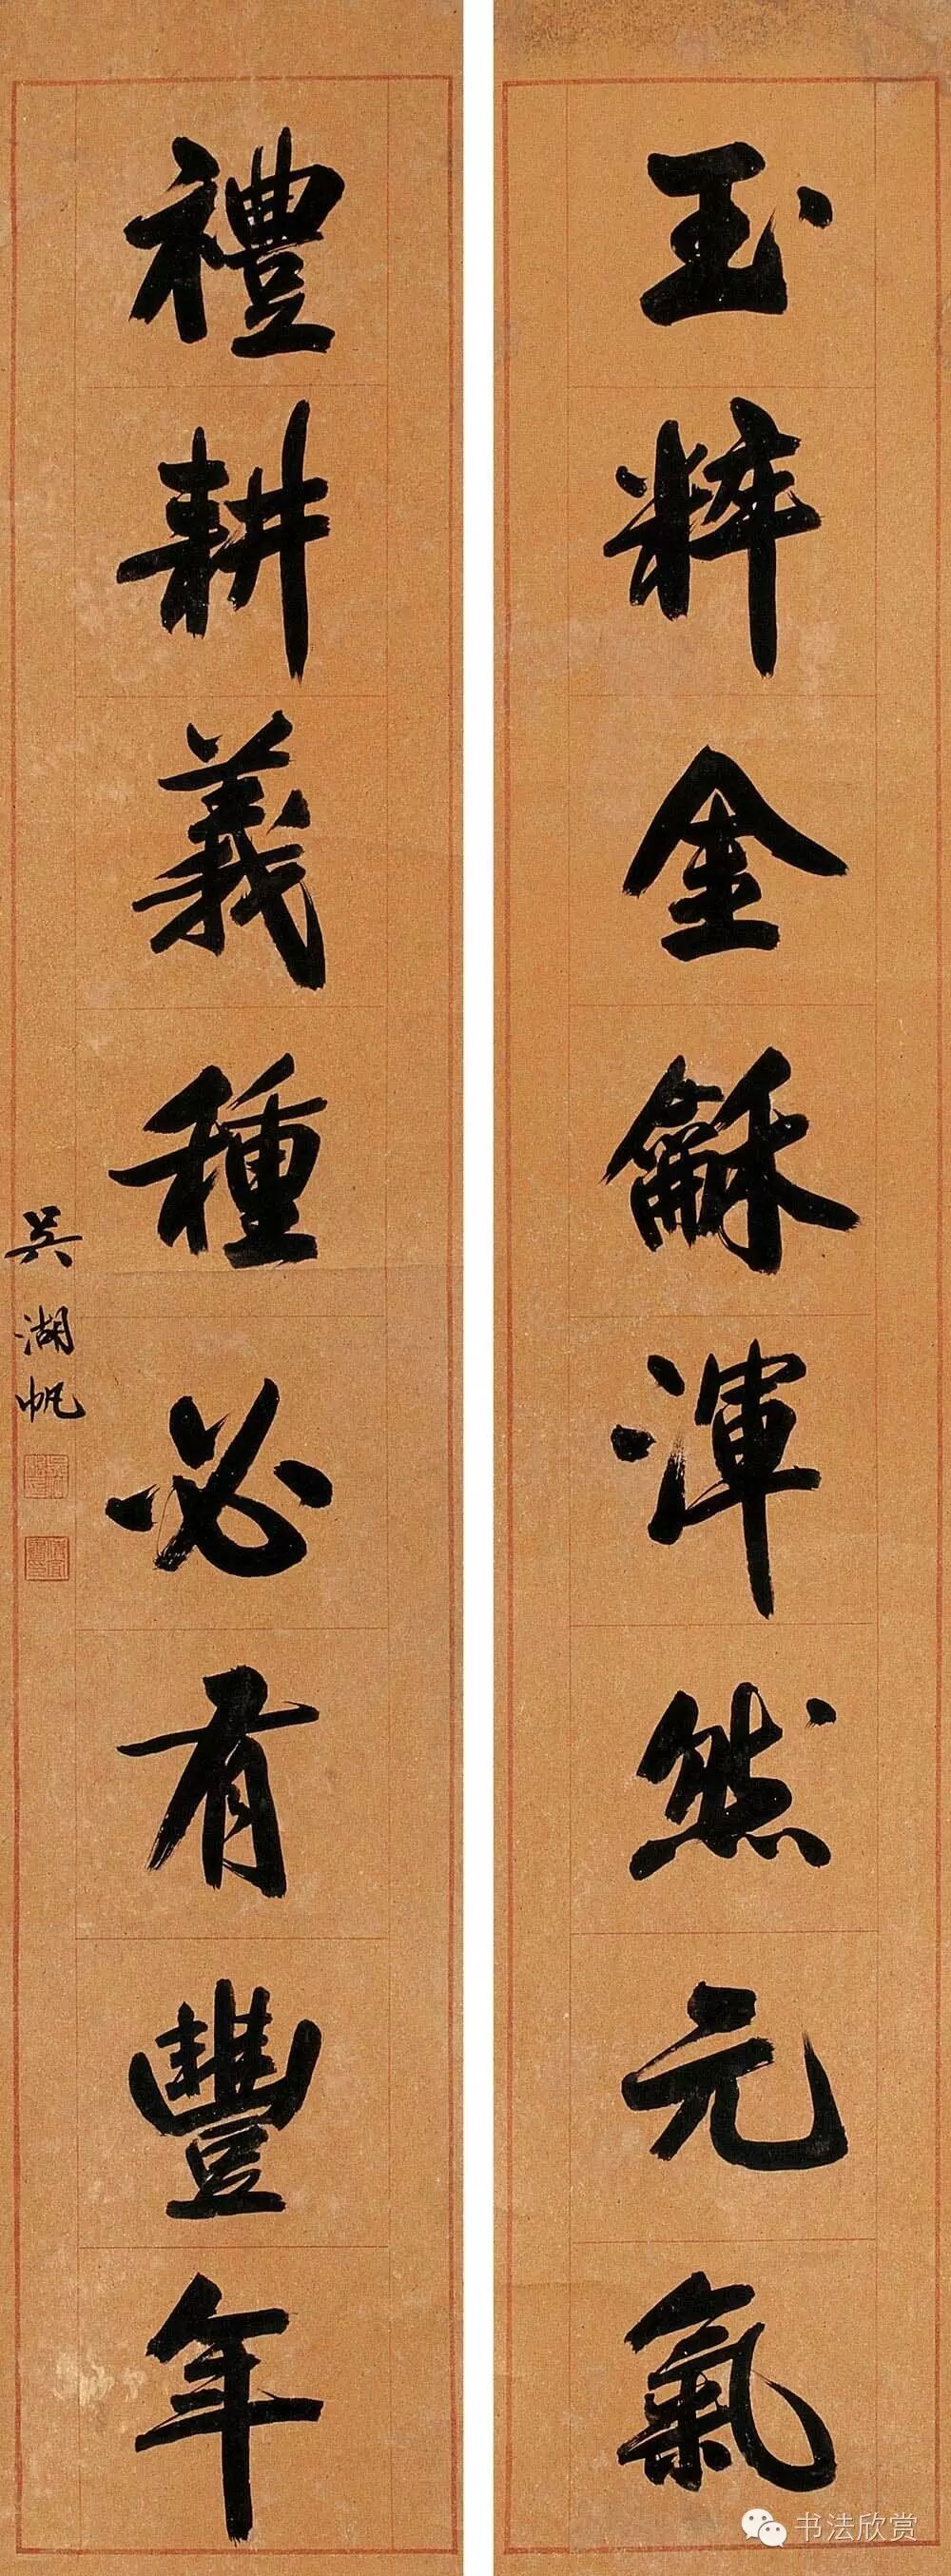 玉粹金龢渾然元氣
禮耕義種必有豐年
吴湖帆
书法欣赏